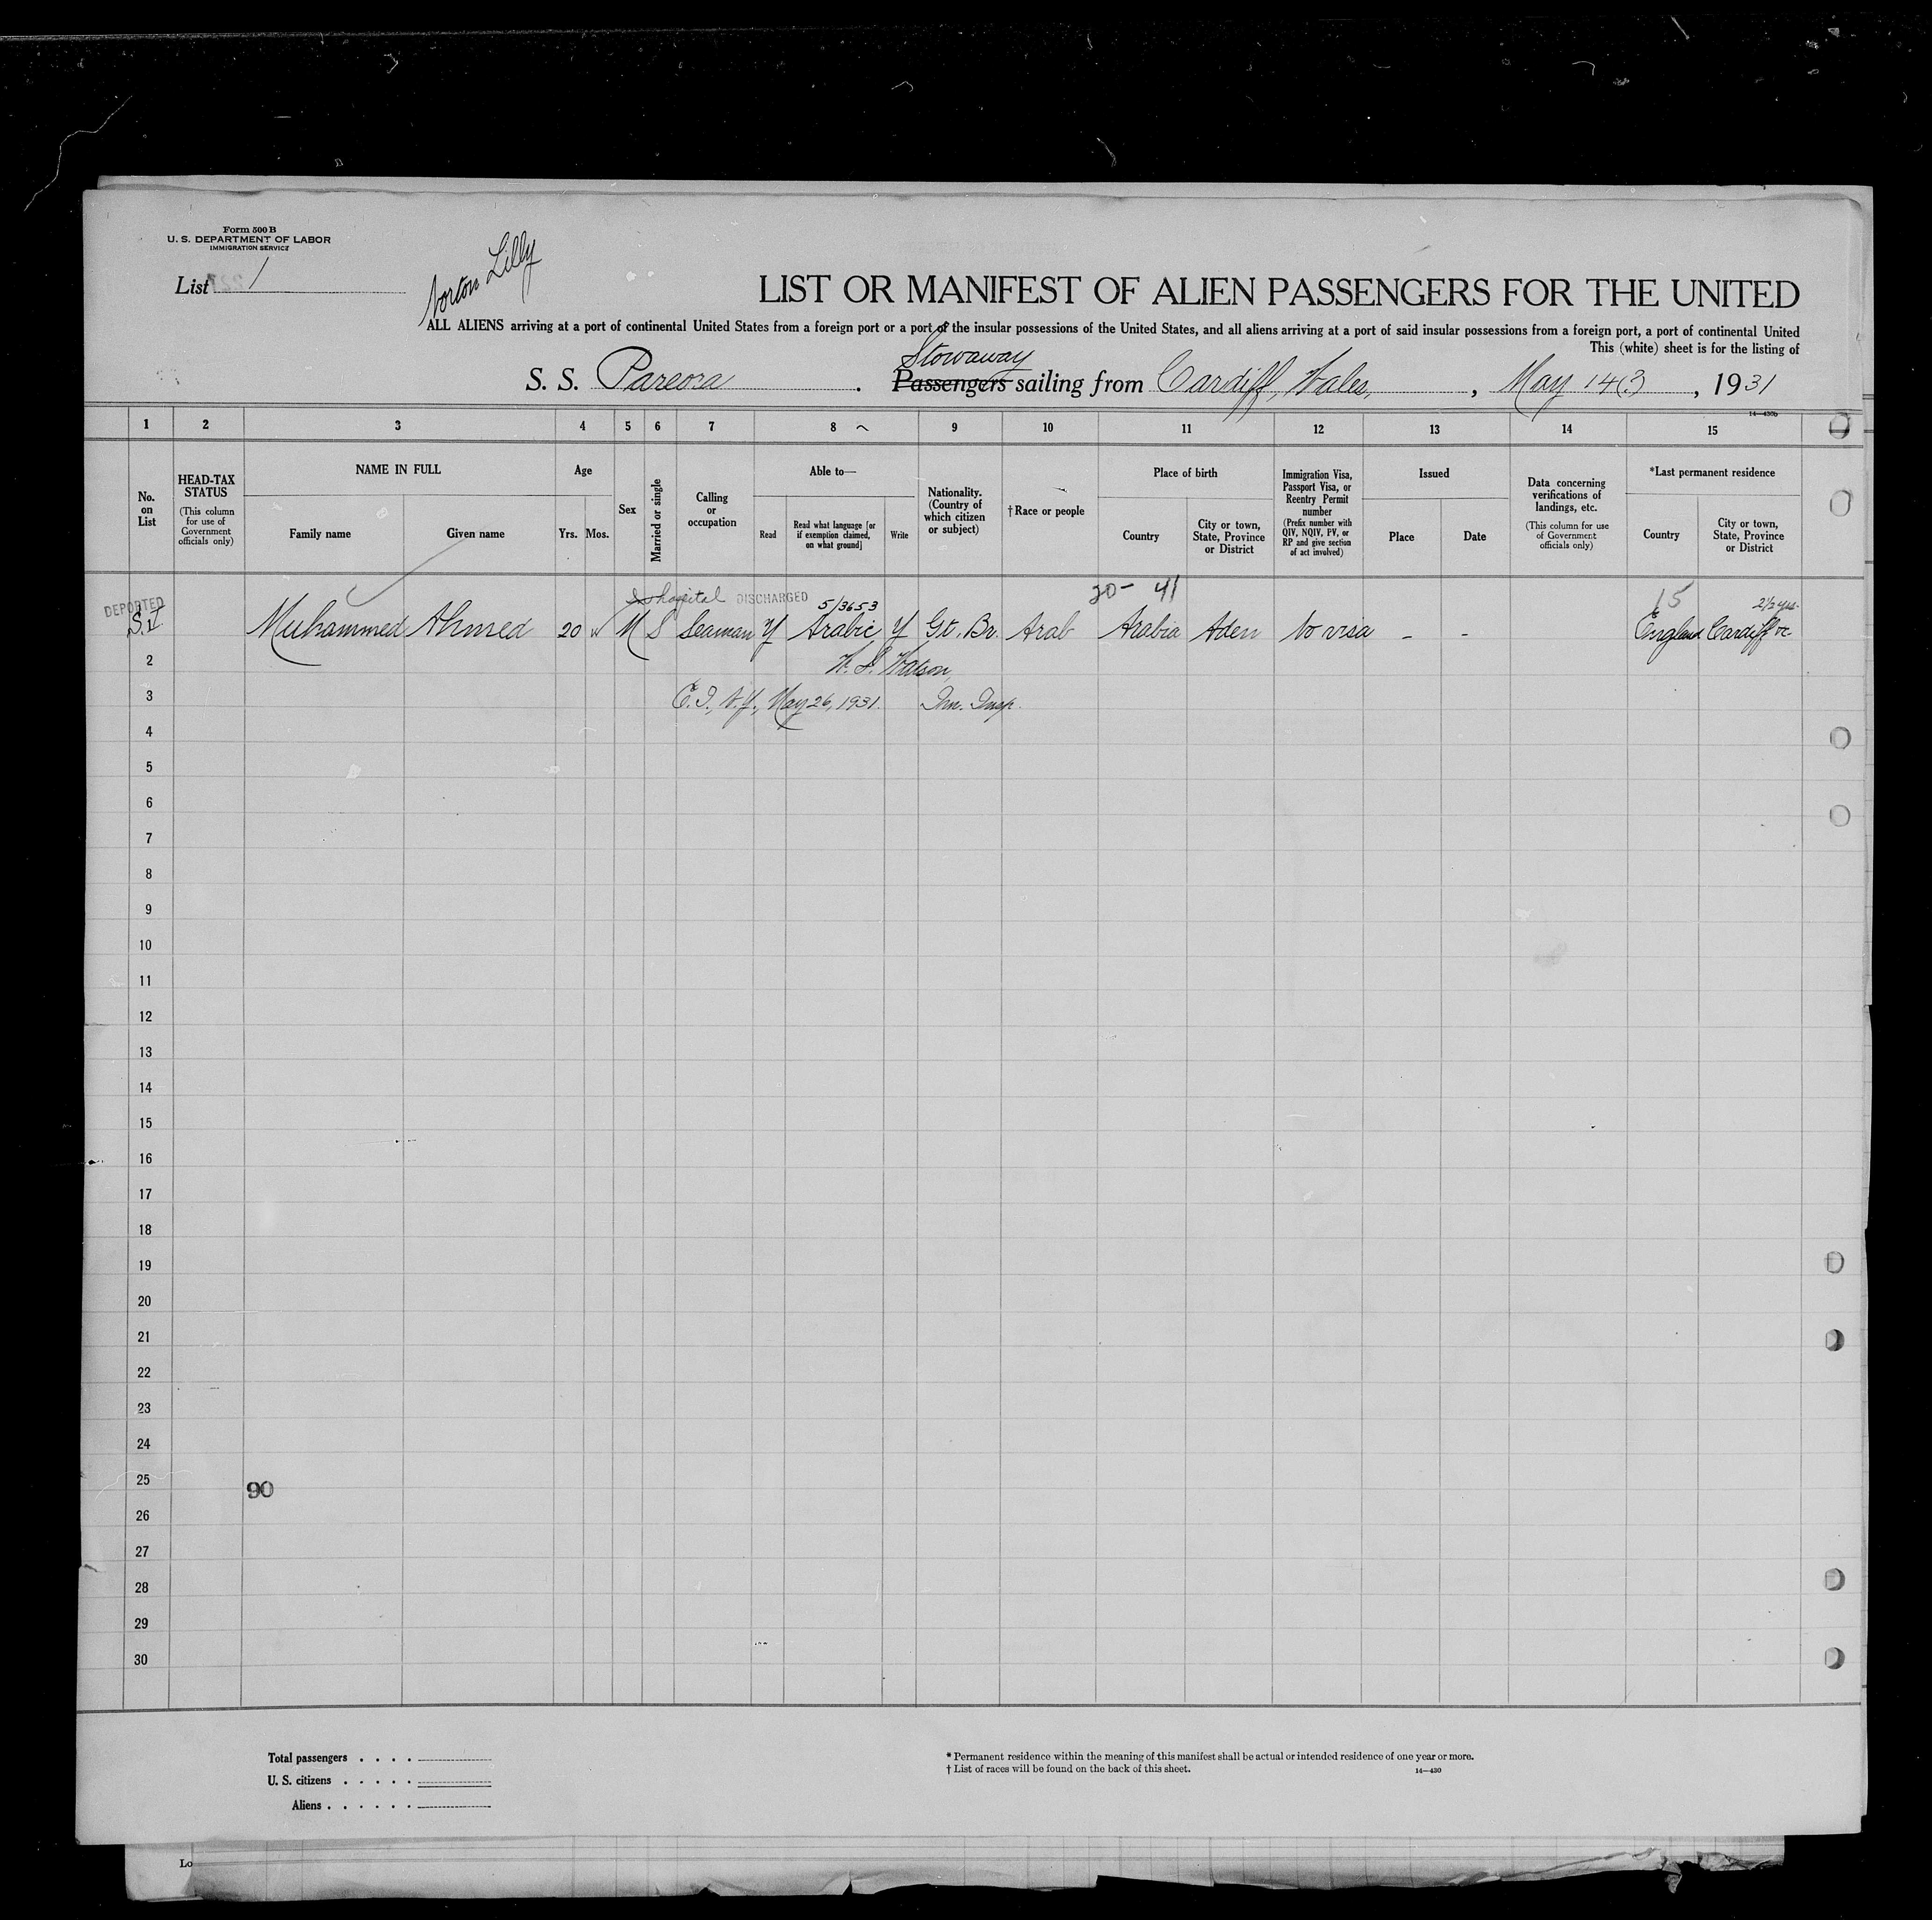 Form 500 B
U. S. DEPARTMENT OF LABOR
IMMIGRATION SERVICE
List 1
Norton Lilly
LIST OR MANIFEST OF ALIEN PASSENGERS FOR THE UNITED
ALL ALIENS arriving at a port of continental United States from a foreign port or a port of the insular possessions of the United States, and all aliens arriving at a port of said insular possessions from a foreign port, a port of continental United
This (white) sheet is for the listing of
Stowaway
S. S. Pareora . Passengers sailing from Cardiff, Wales, , May 14(3 , 1931
14—430b
1 2 3 4 5 6 7 8 9 10 11 12 13 14 15
No. on List
HEAD-TAX STATUS
(This column for use of Government officials only)
NAME IN FULL
Family name
Given name
Age
Yrs. Mos.
Sex
Married or single
Calling or occupation
Able to—
Read
Read what language [or if exemption claimed, on what ground]
Write
Nationality. (Country of which citizen or subject)
†Race or people
Place of birth
Country
City or town, State, Province or District
Immigration Visa, Passport Visa, or Reentry Permit number
(Prefix number with QIV, NQIV, PV, or RP and give section of act involved)
Issued
Place
Date
Data concerning verifications of landings, etc.
(This column for use of Government officials only)
*Last permanent residence
Country
City or town, State, Province or District
DEPORTED hospital DISCHARGED 5/3653 20- 41 15 2½ yrs.
S.I. Muhammed Ahmed 20 M S Seaman Y Arabic Y Gt. Br. Arab Arabia Aden No visa - - England Cardiff
2 W. S. Watson,
3 E. I., N.Y., May 26, 1931. Imm. Insp.
4
5
6
7
8
9
10
11
12
13
14
15
16
17
18
19
20
21
22
23
24
25 90
26
27
28
29
30
Total passengers . . . .
U. S. citizens . . . . .
Aliens . . . . . .
* Permanent residence within the meaning of this manifest shall be actual or intended residence of one year or more.
† List of races will be found on the back of this sheet.
14—430
Lo